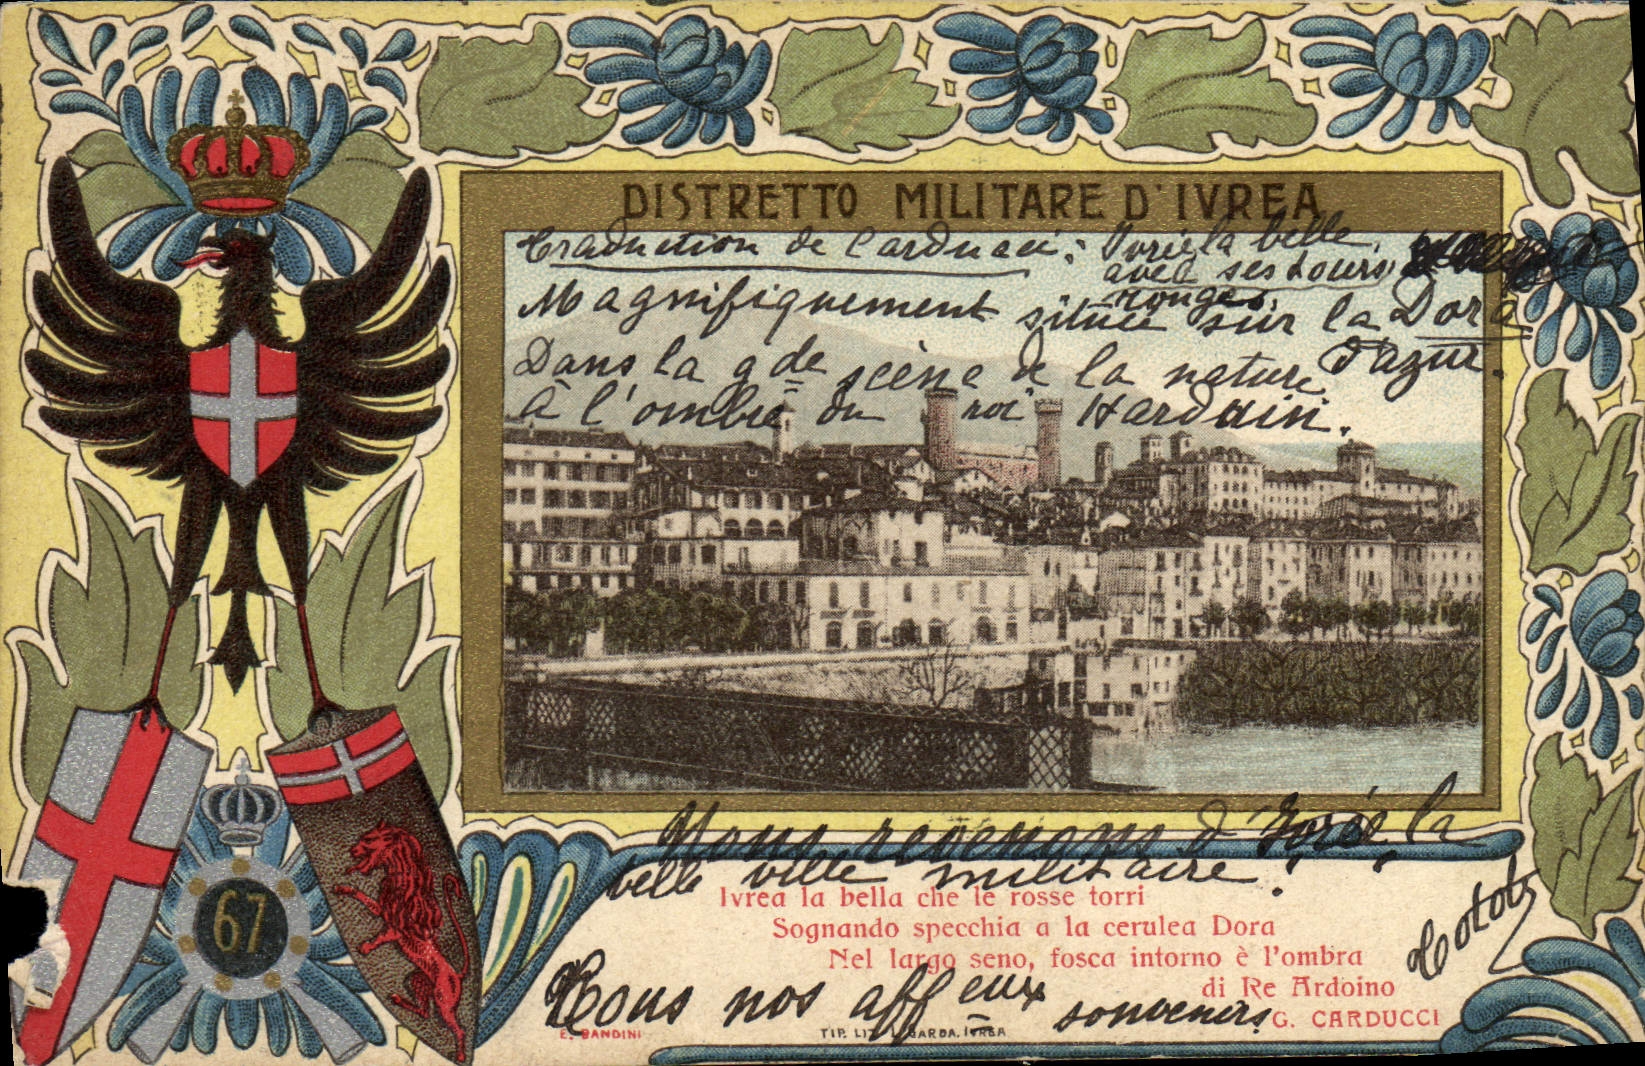 DISTRETTO MILITARE D'IVREA
Traduction de Carducci: Ivrée la belle,
avec ses tours
rouges,
Magnifiquement située sur la Dora
d'azur.
Dans la gde scène de la nature
à l'ombre du roi Harduin.
Nous revenons d'Ivrée la
belle ville militaire.
Ivrea la bella che le rosse torri
Sognando specchia a la cerulea Dora
Nel largo seno, fosca intorno è l'ombra
di Re Ardoino
G. CARDUCCI
Tous nos affeux souvenirs
67
E. BANDINI
TIP. LIT. L. GARDA. IVREA